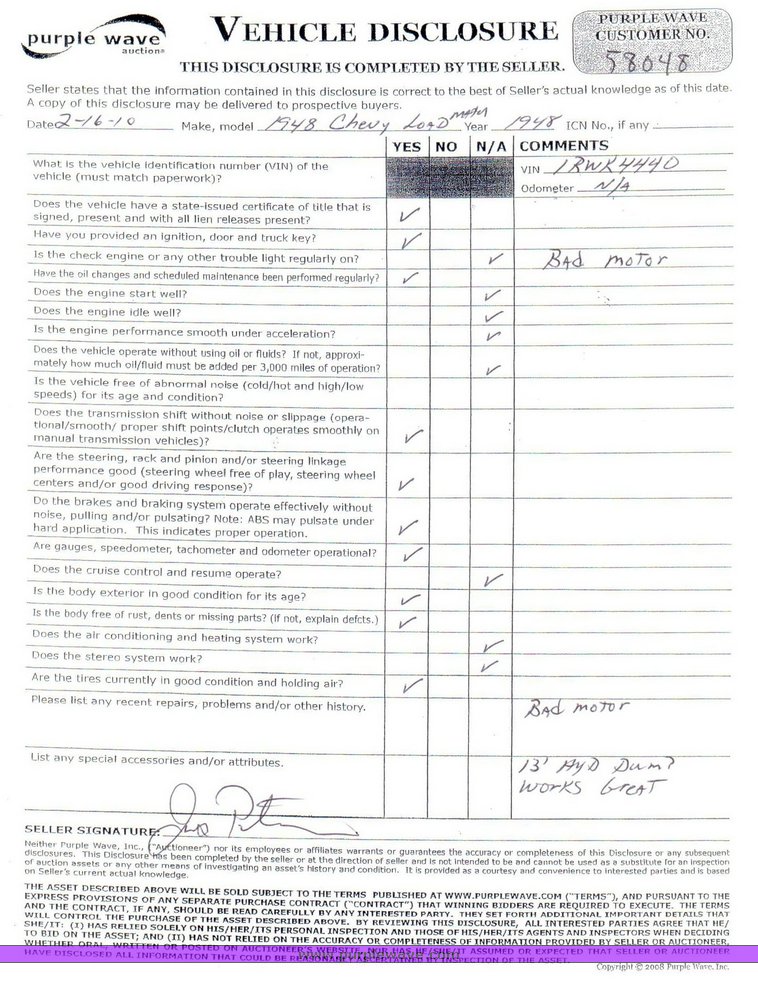 purple wave
auctions
VEHICLE DISCLOSURE
PURPLE WAVE
CUSTOMER NO.
58048
THIS DISCLOSURE IS COMPLETED BY THE SELLER.
Seller states that the information contained in this disclosure is correct to the best of Seller's actual knowledge as of this date.
A copy of this disclosure may be delivered to prospective buyers.
Date 2-16-10 Make, model 1948 Chevy LOAD Year 1948 ICN No., if any
YES NO N/A COMMENTS
What is the vehicle identification number (VIN) of the
vehicle (must match paperwork)?
VIN 1RWK4440
Odometer N/A
Does the vehicle have a state-issued certificate of title that is
signed, present and with all lien releases present? ✓
Have you provided an ignition, door and truck key? ✓
Is the check engine or any other trouble light regularly on? ✓ BAd motor
Have the oil changes and scheduled maintenance been performed regularly? ✓
Does the engine start well? ✓
Does the engine idle well? ✓
Is the engine performance smooth under acceleration? ✓
Does the vehicle operate without using oil or fluids? If not, approxi-
mately how much oil/fluid must be added per 3,000 miles of operation? ✓
Is the vehicle free of abnormal noise (cold/hot and high/low
speeds) for its age and condition?
Does the transmission shift without noise or slippage (opera-
tional/smooth/ proper shift points/clutch operates smoothly on
manual transmission vehicles)? ✓
Are the steering, rack and pinion and/or steering linkage
performance good (steering wheel free of play, steering wheel
centers and/or good driving response)? ✓
Do the brakes and braking system operate effectively without
noise, pulling and/or pulsating? Note: ABS may pulsate under
hard application. This indicates proper operation. ✓
Are gauges, speedometer, tachometer and odometer operational? ✓
Does the cruise control and resume operate? ✓
Is the body exterior in good condition for its age? ✓
Is the body free of rust, dents or missing parts? (if not, explain defcts.) ✓
Does the air conditioning and heating system work? ✓
Does the stereo system work? ✓
Are the tires currently in good condition and holding air? ✓
Please list any recent repairs, problems and/or other history. BAd motor
List any special accessories and/or attributes. 13' HyD Dump
WORKS GreAT
SELLER SIGNATURE:
Neither Purple Wave, Inc., ("Auctioneer") nor its employees or affiliates warrants or guarantees the accuracy or completeness of this Disclosure or any subsequent
disclosures. This Disclosure has been completed by the seller or at the direction of seller and is not intended to be and cannot be used as a substitute for an inspection
of auction assets or any other means of investigating an asset's history and condition. It is provided as a courtesy and convenience to interested parties and is based
on Seller's current actual knowledge.
THE ASSET DESCRIBED ABOVE WILL BE SOLD SUBJECT TO THE TERMS PUBLISHED AT WWW.PURPLEWAVE.COM ("TERMS"), AND PURSUANT TO THE
EXPRESS PROVISIONS OF ANY SEPARATE PURCHASE CONTRACT ("CONTRACT") THAT WINNING BIDDERS ARE REQUIRED TO EXECUTE. THE TERMS
AND THE CONTRACT, IF ANY, SHOULD BE READ CAREFULLY BY ANY INTERESTED PARTY. THEY SET FORTH ADDITIONAL IMPORTANT DETAILS THAT
WILL CONTROL THE PURCHASE OF THE ASSET DESCRIBED ABOVE. BY REVIEWING THIS DISCLOSURE, ALL INTERESTED PARTIES AGREE THAT HE/
SHE/IT: (I) HAS RELIED SOLELY ON HIS/HER/ITS PERSONAL INSPECTION AND THOSE OF HIS/HER/ITS AGENTS AND INSPECTORS WHEN DECIDING
TO BID ON THE ASSET; AND (II) HAS NOT RELIED ON THE ACCURACY OR COMPLETENESS OF INFORMATION PROVIDED BY SELLER OR AUCTIONEER,
WHETHER ORAL, WRITTEN OR POSTED ON AUCTIONEER'S WEBSITE, NOR HAS HE/SHE/IT ASSUMED OR EXPECTED THAT SELLER OR AUCTIONEER
HAVE DISCLOSED ALL INFORMATION THAT COULD BE REASONABLY ASCERTAINED BY INSPECTION OF THE ASSET.
www.purplewave.com
Copyright © 2008 Purple Wave, Inc.